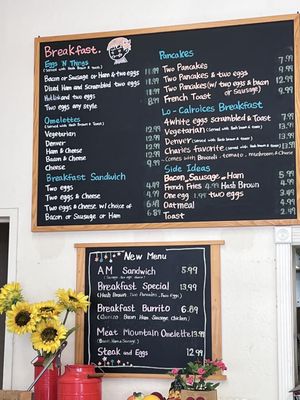 Breakfast.
Eggs N Things
(Served with Hash Brown & Toast)
Bacon or Sausage or Ham & two eggs
Diced Ham and Scrambled two eggs
and two eggs
Two eggs any style 8.99
Omelettes
(Served with Hash Brown & Toast)
Vegetarian 12.99
Denver 12.99
Ham & Cheese 12.99
Bacon & Cheese 12.99
Cheese 9.99
Breakfast Sandwich
Two eggs 4.49
Two eggs & Cheese 4.99
Two eggs & Cheese w/ choice of
Bacon or Sausage or Ham 6.89
Pancakes
Two Pancakes
Two Pancakes & two eggs
Two Pancakes (w/ two eggs & bacon
or Sausage)
French Toast
Lo-Calroices Breakfast
4 White eggs scrambled & Toast
Vegetarian (Served with Hash brown & toast)
Denver (Served with Hash brown & toast)
Charles Favorite (Served with Hash brown & toast)
-Comes with Broccoli - tomato, mushroom & Cheese
Side Ideas
Bacon, Sausage or Ham 5.99
French Fries 4.99 Hash Brown 4.99
One egg 1.99 two eggs 2.99
Oatmeal 4.99
Toast 2.99
New Menu
AM Sandwich 5.99
Breakfast Special 13.99
(Hash Brown Two Pancakes, Two Eggs)
Breakfast Burrito 9.99
(Bacon Ham Sausage Chicken)
Meat Mountain Omelette 13.99
(Bacon, Ham & Sausage)
Steak and Eggs 12.99